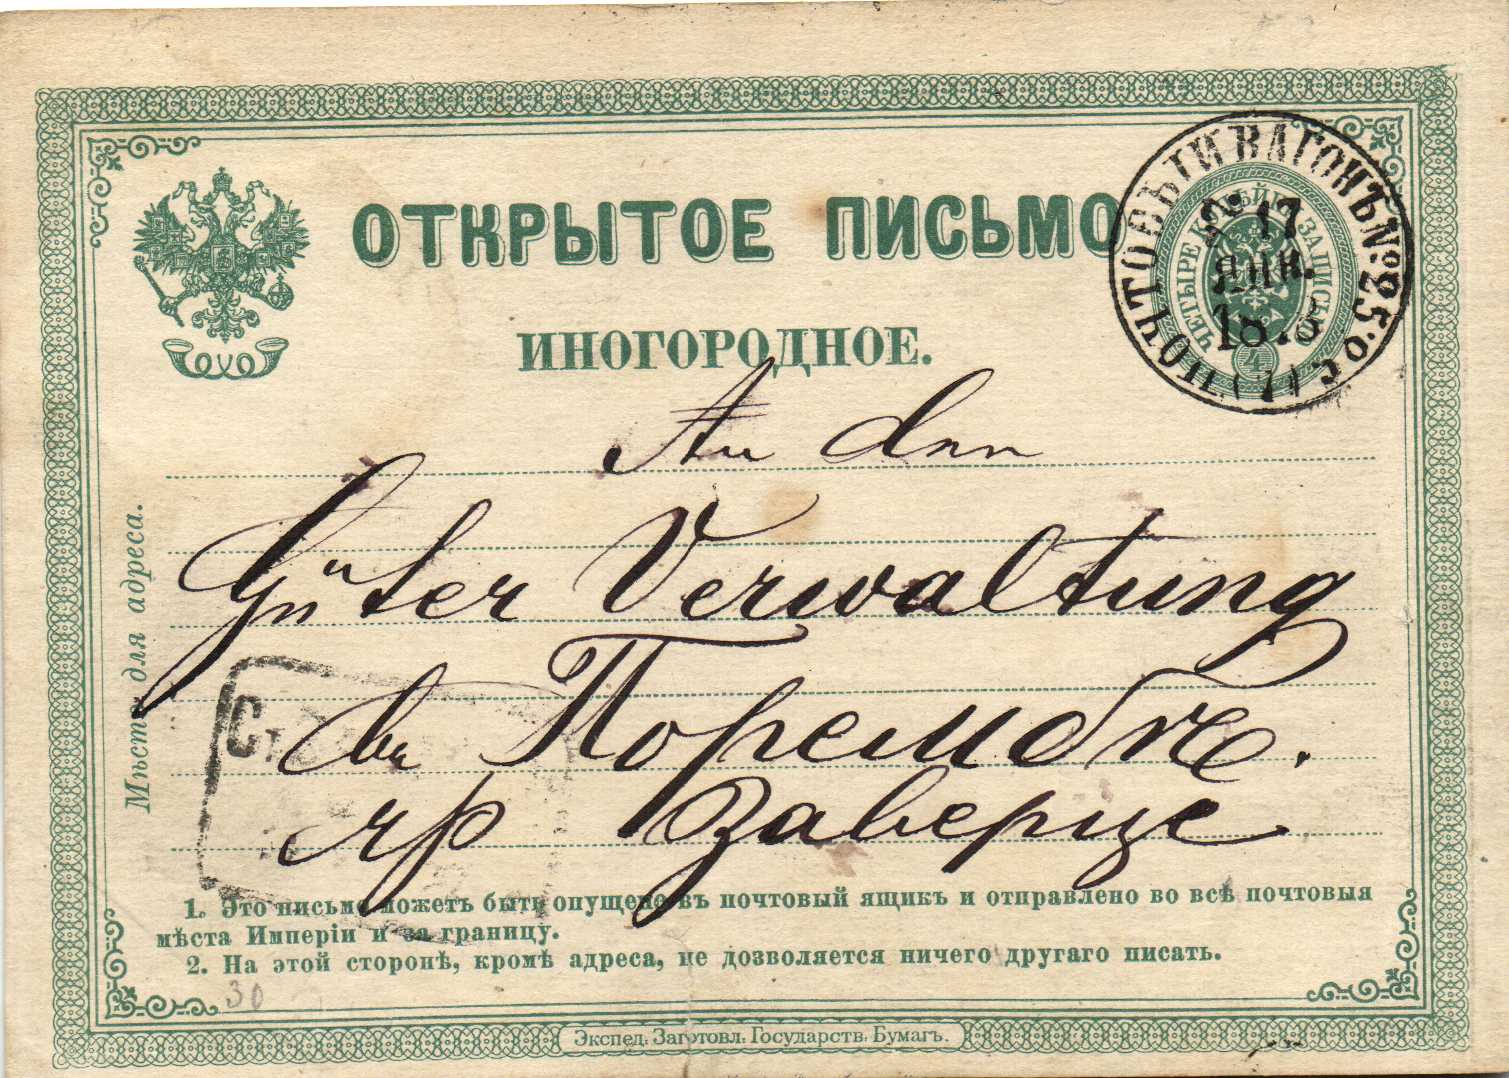 ОТКРЫТОЕ ПИСЬМО
ИНОГОРОДНОЕ.
ПОЧТОВЫЙ ВАГОНЪ №. 25.
17
ЯНВ.
ЧЕТЫРЕ КОПѢЙКИ ЗАПИСЬ
4
Мѣсто для адреса.
An
Güter Verwaltung
Порембѣ.
Заверце
Ст.
1. Это письмо можетъ быть опущено въ почтовый ящикъ и отправлено во всѣ почтовыя
мѣста Имперіи и за границу.
2. На этой сторонѣ, кромѣ адреса, не дозволяется ничего другаго писать.
30
Экспед. Заготовл. Государств. Бумагъ.